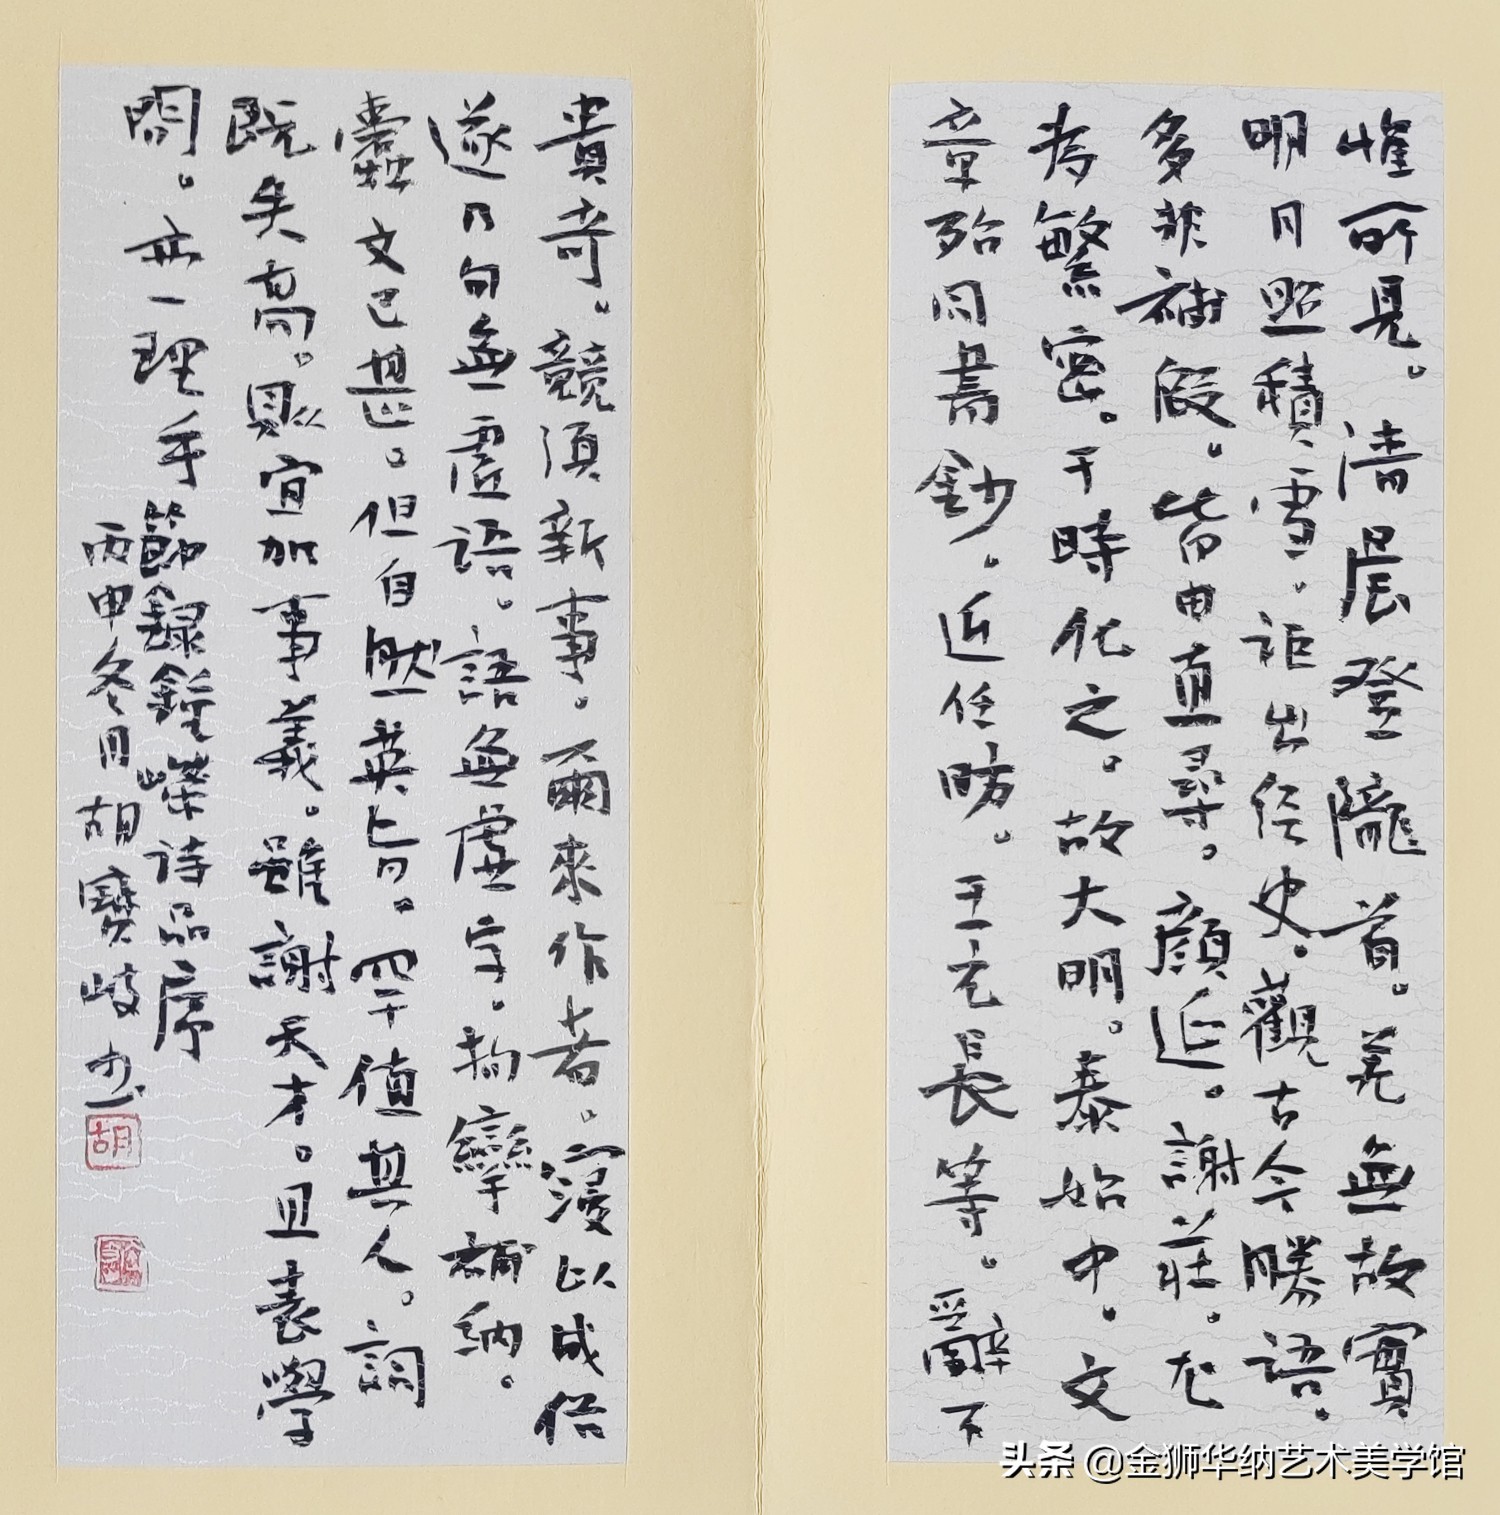 惟所見。清晨登隴首。羌無故實
明月照積雪。詎出经史。觀古今勝语。
多非補假。皆由直尋。顔延。謝莊。尤
為繁密。于時化之。故大明。泰始中。文
章殆同書鈔。近任昉。王元長等。辭不
貴奇。競須新事。爾來作者。寖以成俗
遂乃句無虛语。語無虛字。拘攣補纳。
蠹文已甚。但自然英旨。罕值其人。詞
既失高。則宜加事義。雖謝天才。且表學
問。亦一理乎
節録鍾嶸诗品序
丙申冬月胡寶岐书
胡
头条 @金狮华纳艺术美学馆